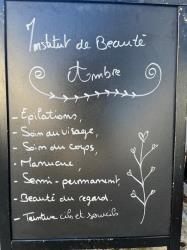 Institut de Beauté
Ambre
- Epilations,
- Soin du visage,
- Soin du corps,
- Manucure,
- Semi-permanent,
- Beauté du regard.
- Teinture cils et sourcils